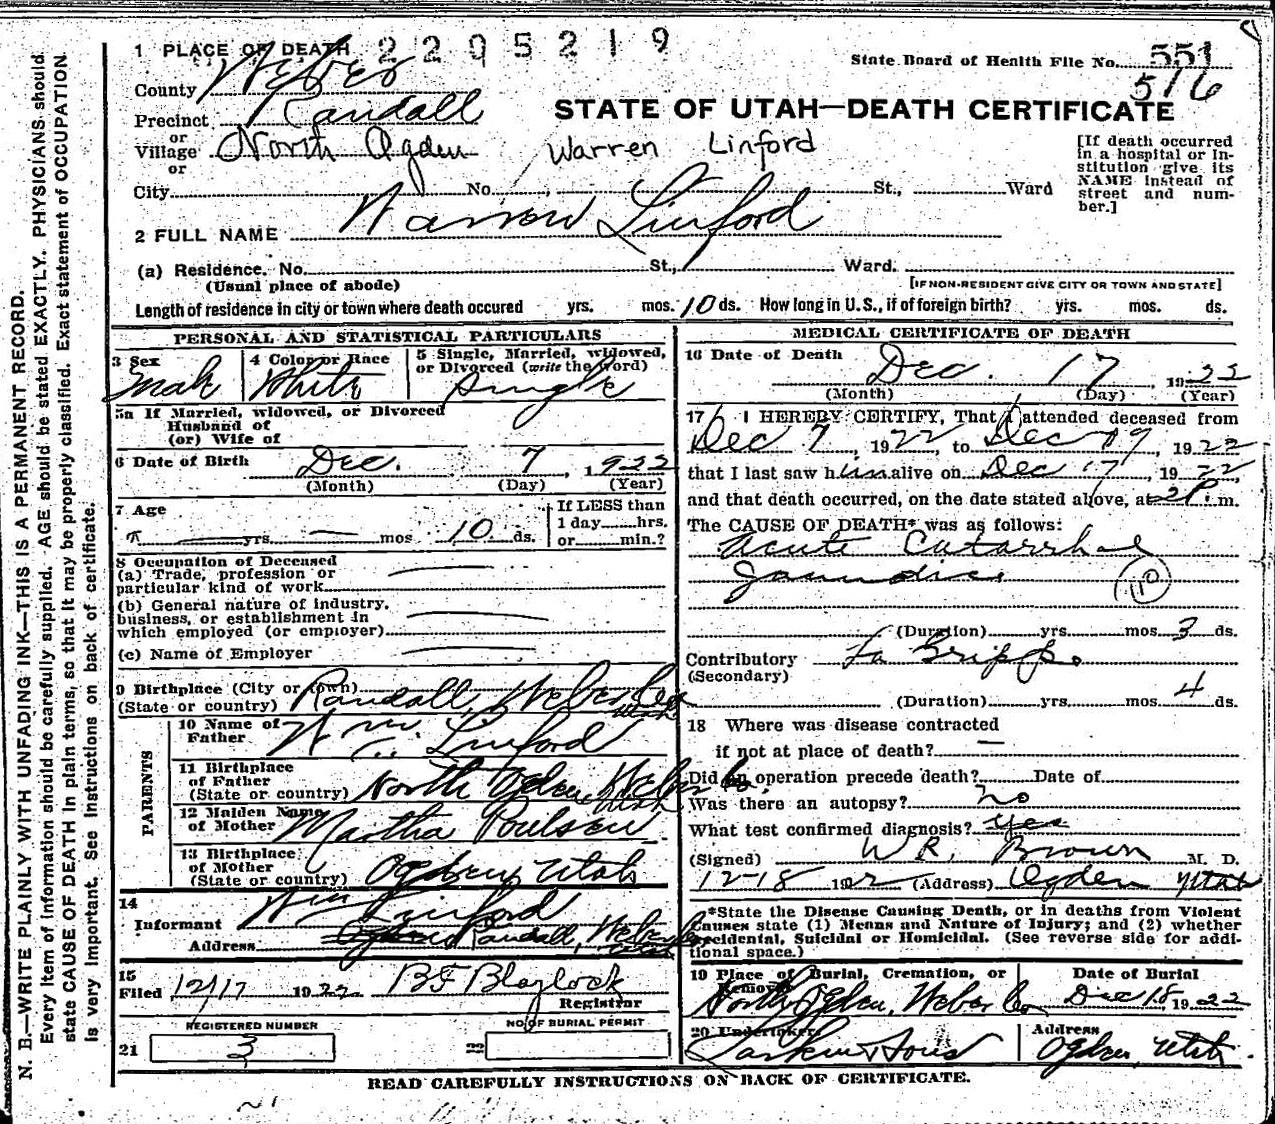 N. B.—WRITE PLAINLY WITH UNFADING INK—THIS IS A PERMANENT RECORD.
Every item of information should be carefully supplied. AGE should be stated EXACTLY. PHYSICIANS should
state CAUSE OF DEATH in plain terms, so that it may be properly classified. Exact statement of OCCUPATION
is very important. See instructions on back of certificate.
1 PLACE OF DEATH 2205219
State Board of Health File No. 551
516
County Weber
STATE OF UTAH—DEATH CERTIFICATE
Precinct Randall
or
Village North Ogden
or
Warren Linford
[If death occurred
in a hospital or in-
stitution give its
NAME instead of
street and num-
ber.]
City No. St., Ward
2 FULL NAME Warren Linford
(a) Residence. No. St., Ward.
(Usual place of abode)
[IF NON-RESIDENT GIVE CITY OR TOWN AND STATE]
Length of residence in city or town where death occured yrs. mos. 10 ds. How long in U.S., if of foreign birth? yrs. mos. ds.
PERSONAL AND STATISTICAL PARTICULARS
3 Sex 4 Color or Race 5 Single, Married, widowed,
or Divorced (write the word)
Male White Single
5a If Married, widowed, or Divorced
Husband of
(or) Wife of
6 Date of Birth Dec. 7, 1922
(Month) (Day) (Year)
7 Age
If LESS than
1 day hrs.
or min.?
yrs. — mos 10 ds.
8 Occupation of Deceased
(a) Trade, profession or
particular kind of work
(b) General nature of industry,
business, or establishment in
which employed (or employer)
(c) Name of Employer
9 Birthplace (City or town)
(State or country) Randall, Weber Co
Utah
PARENTS
10 Name of
Father Wm. Linford
11 Birthplace
of Father
(State or country) North Ogden Weber Co.
Utah
12 Maiden Name
of Mother Martha Poulsen
13 Birthplace
of Mother
(State or country) Ogden Utah
14
Informant Wm Linford
Address Ogden Randall, Weber Co
Utah
15
Filed 12/17 1922 BF Blaylock
Registrar
REGISTERED NUMBER
NO OF BURIAL PERMIT
21 3
22
MEDICAL CERTIFICATE OF DEATH
16 Date of Death Dec. 17, 1922
(Month) (Day) (Year)
17 I HEREBY CERTIFY, That I attended deceased from
Dec 7, 1922, to Dec 19, 1922
that I last saw him alive on Dec 17, 1922,
and that death occurred, on the date stated above, at 2P. m.
The CAUSE OF DEATH* was as follows:
Acute Catarrhal
Jaundice
(Duration) yrs. mos. 3 ds.
Contributory La Grippe
(Secondary)
(Duration) yrs. mos. 4 ds.
18 Where was disease contracted
if not at place of death? —
Did an operation precede death? Date of
Was there an autopsy? no
What test confirmed diagnosis? yes
(Signed) W R. Brown M. D.
12-18 1922 (Address) Ogden Utah
*State the Disease Causing Death, or in deaths from Violent
Causes state (1) Means and Nature of Injury; and (2) whether
Accidental, Suicidal or Homicidal. (See reverse side for addi-
tional space.)
19 Place of Burial, Cremation, or
Removal
Date of Burial
North Ogden, Weber Co Dec 18 1922
20 Undertaker
Address
Larkin & Sons Ogden, Utah.
READ CAREFULLY INSTRUCTIONS ON BACK OF CERTIFICATE.